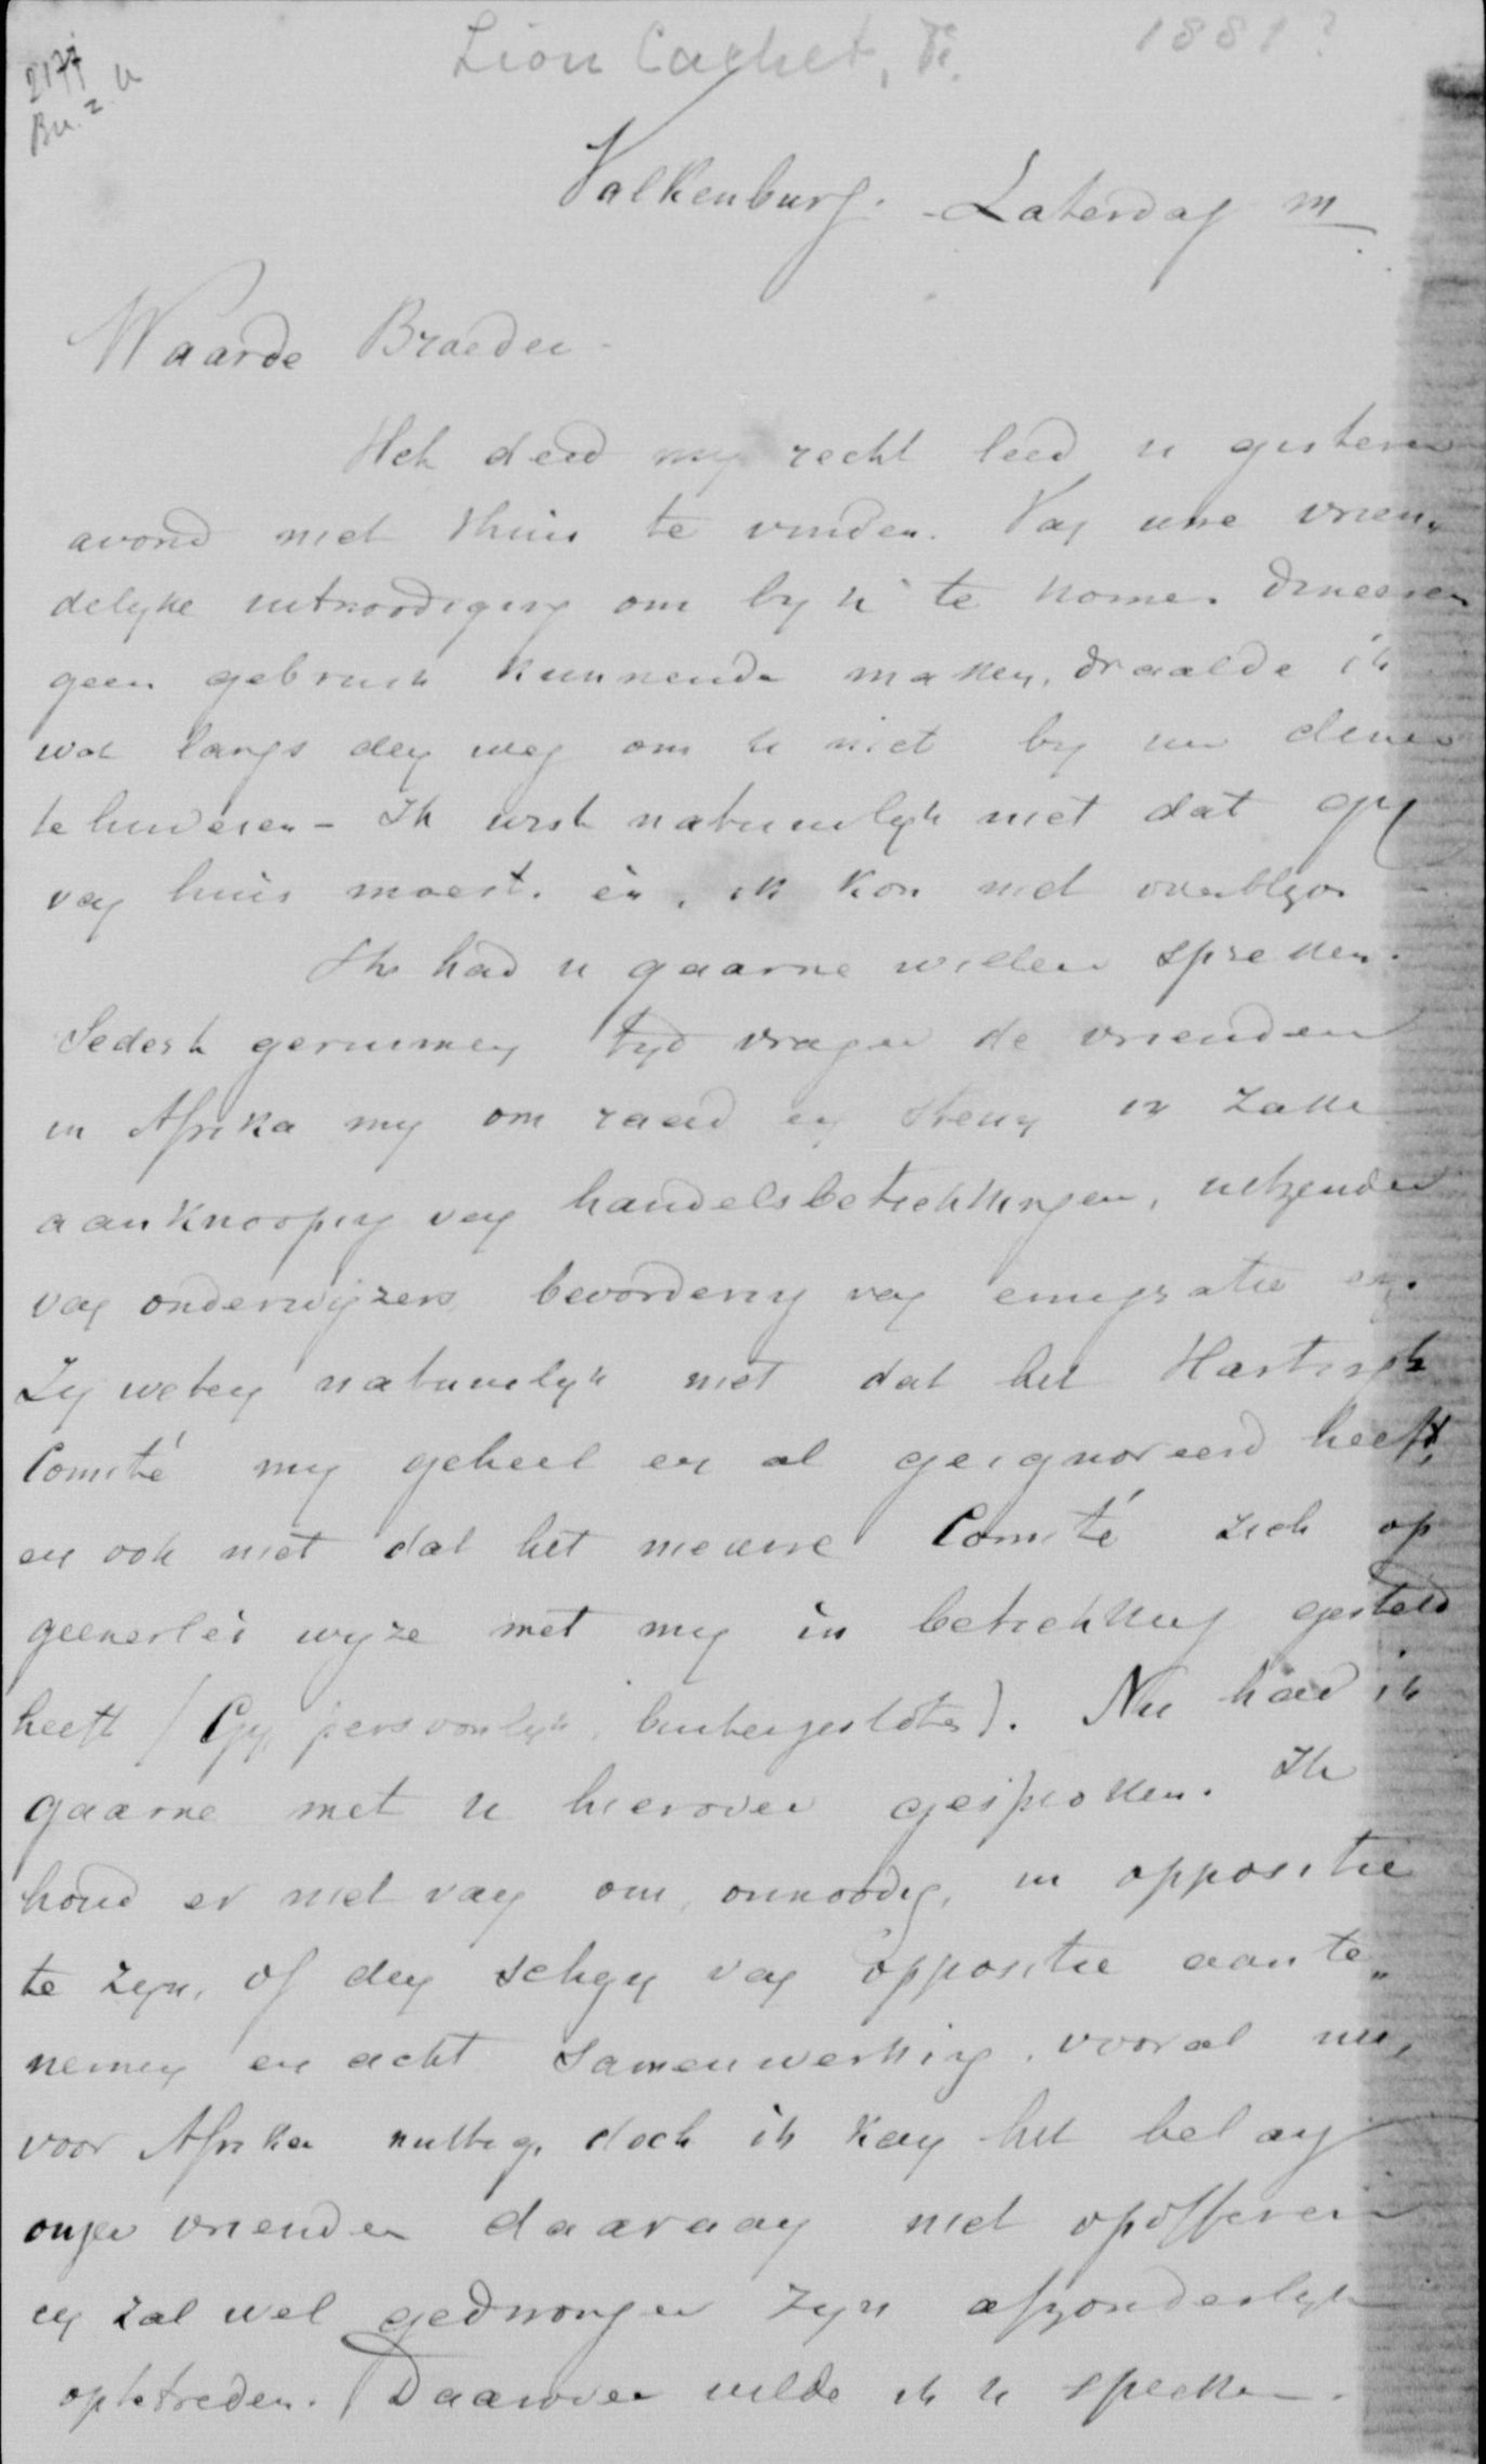 Lion Cachet, F. 1881?
2177
Bu. 2 u
Valkenburg. - Saterdag m
Waarde Broeder -
Het deed my recht leed u gisteren
avond niet thuis te vinden. Van uwe vrien„
delyke uitnoodiging om by u te komen dineeren
geen gebruik kunnende maken, draalde ik
wat langs den weg om u niet by uw diner
te hinderen - Ik wist natuurlyk niet dat gy
van huis moest. èn, ik kon niet overblyven
Ik had u gaarne willen spreken.
Sedert geruimen tyd vragen de vrienden
in Afrika my om raad en steun in zake
aanknooping van handelsbetrekkingen, uitzenden
van onderwijzers, bevordering van emigratie enz.
Zy weten natuurlyk niet dat het Harting's
Comité my geheel en al geignoreerd heeft,
en ook niet dat het nieuwe Comité zich op
geenerlei wyze met my in betrekking gesteld
heeft (Gy, persoonlyk, buitengesloten). Nu had ik
gaarne met u hierover gesproken. Ik
houd er niet van om, onnoodig, in oppositie
te zyn, of den schyn van oppositie aan te„
nemen en acht samenwerking, vooral nu,
voor Afrika nuttig, doch ik kan het belang
onzer vrienden daaraan niet opofferen
en zal wel gedwongen zyn afzonderlyk
optetreden. Daarover wilde ik u spreken.